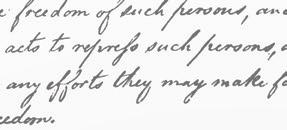 freedom of such persons, and
acts to repress such persons,
any efforts they may make